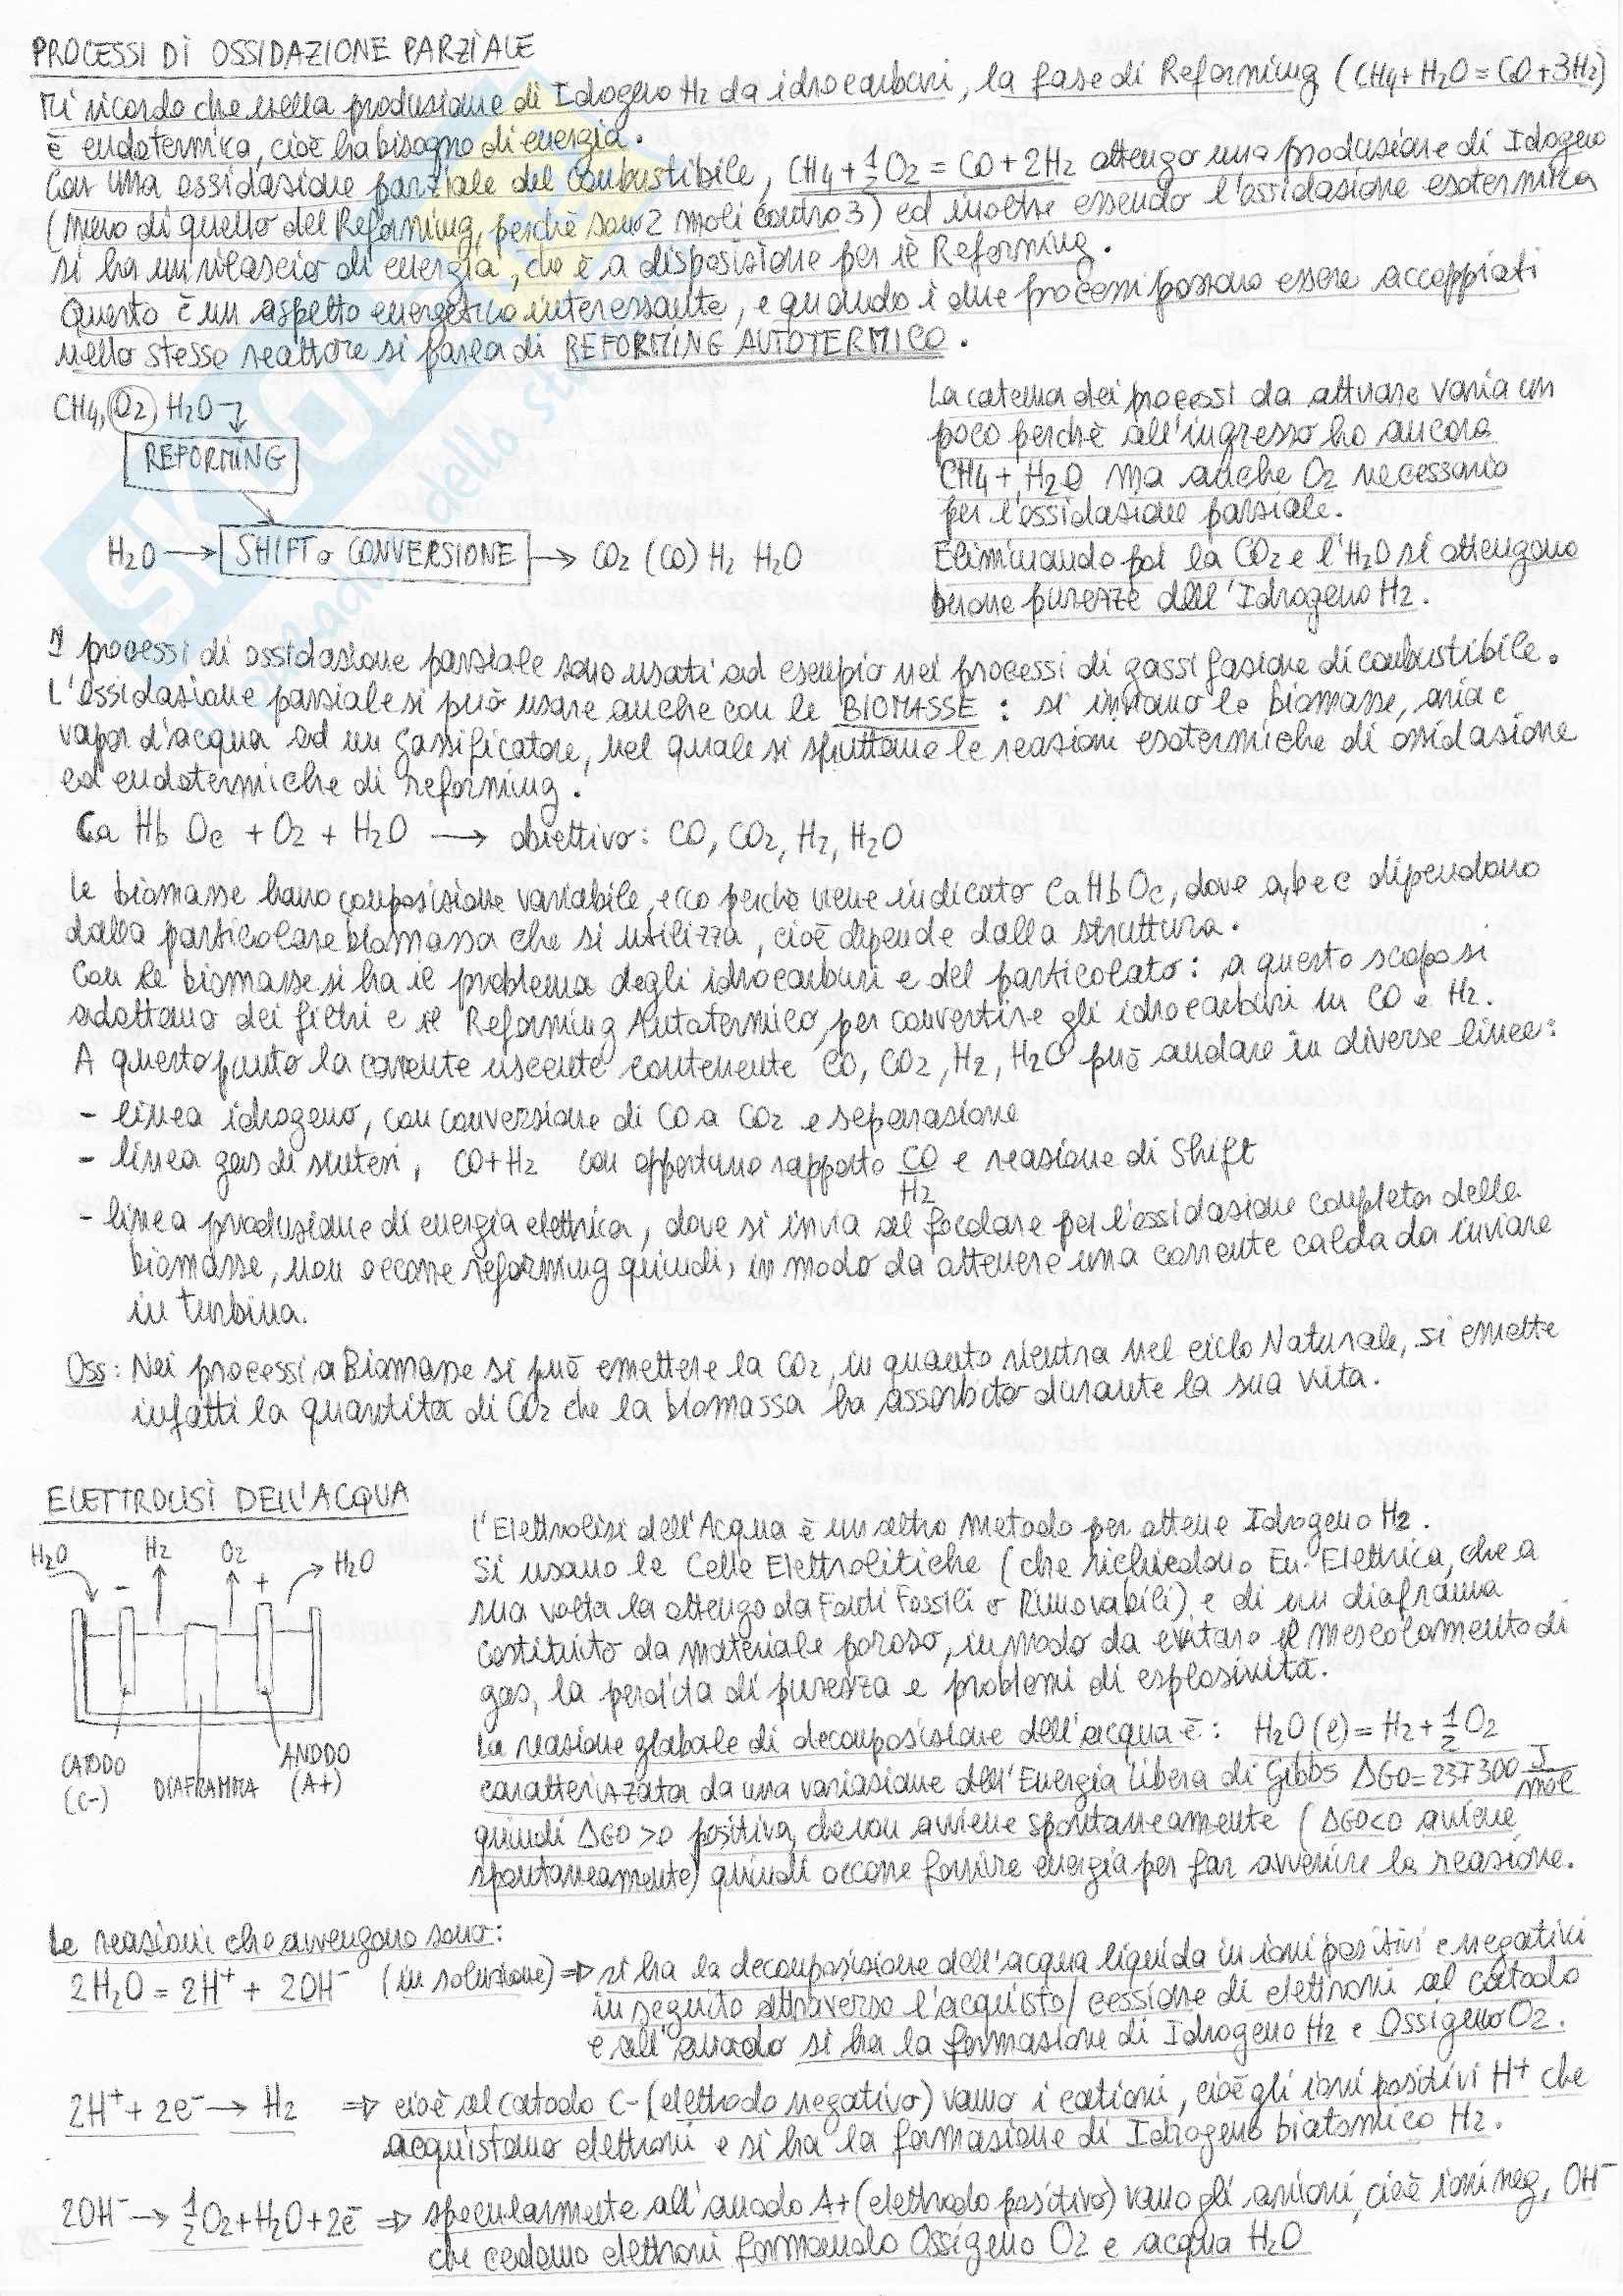 PROCESSI DI OSSIDAZIONE PARZIALE
Mi ricordo che nella produzione di Idrogeno H2 da idrocarburi, la fase di Reforming (CH4 + H2O = CO + 3H2)
è endotermica, cioè ha bisogno di energia.
Con una ossidazione parziale del combustibile, CH4 + 1/2 O2 = CO + 2H2 ottengo una produzione di Idrogeno
(meno di quello del Reforming, perchè sono 2 moli contro 3) ed inoltre essendo l'ossidazione esotermica
si ha un rilascio di energia, che è a disposizione per il Reforming.
Questo è un aspetto energetico interessante, e quando i due processi possono essere accoppiati
nello stesso reattore si parla di REFORMING AUTOTERMICO.
CH4, O2, H2O
REFORMING
H2O → SHIFT o CONVERSIONE → CO2 (CO) H2 H2O
La catena dei processi da attuare varia un
poco perchè all'ingresso ho ancora
CH4 + H2O ma anche O2 necessario
per l'ossidazione parziale.
Eliminando poi la CO2 e l'H2O si ottengono
buone purezze dell'Idrogeno H2.
I processi di ossidazione parziale sono usati ad esempio nei processi di gassificazione di combustibile.
L'ossidazione parziale si può usare anche con le BIOMASSE: si inviano le biomasse, aria e
vapor d'acqua ad un gassificatore, nel quale si sfruttano le reazioni esotermiche di ossidazione
ed endotermiche di reforming.
Ca Hb Oc + O2 + H2O → obiettivo: CO, CO2, H2, H2O
Le biomasse hanno composizione variabile, ecco perchè viene indicato CaHbOc, dove a, b e c dipendono
dalla particolare biomassa che si utilizza, cioè dipende dalla struttura.
Con le biomasse si ha il problema degli idrocarburi e del particolato: a questo scopo si
adottano dei filtri e il Reforming Autotermico, per convertire gli idrocarburi in CO e H2.
A questo punto la corrente uscente contenente CO, CO2, H2, H2O può andare in diverse linee:
- linea idrogeno, con conversione di CO a CO2 e separazione
- linea gas di sintesi, CO+H2 con opportuno rapporto CO/H2 e reazione di Shift
- linea produzione di energia elettrica, dove si invia al focolare per l'ossidazione completa delle
biomasse, non occorre reforming quindi, in modo da ottenere una corrente calda da inviare
in turbina.
Oss: Nei processi a Biomasse si può emettere la CO2, in quanto rientra nel ciclo Naturale, si emette
infatti la quantità di CO2 che la biomassa ha assorbito durante la sua vita.
ELETTROLISI DELL'ACQUA
H2O H2 O2 H2O
- +
CATODO (C-)
DIAFRAMMA
ANODO (A+)
L'Elettrolisi dell'Acqua è un altro metodo per ottene Idrogeno H2.
Si usano le Celle Elettrolitiche (che richiedono En. Elettrica, che a
sua volta la ottengo da Fonti Fossili o Rinnovabili) e di un diaframma
costituito da materiale poroso, in modo da evitare il mescolamento di
gas, la perdita di purezza e problemi di esplosività.
La reazione globale di decomposizione dell'acqua è: H2O (l) = H2 + 1/2 O2
caratterizzata da una variazione dell'Energia Libera di Gibbs ΔG0 = 237300 J/mol
quindi ΔG0 >0 positiva, che non avviene spontaneamente (ΔG0<0 avviene
spontaneamente) quindi occorre fornire energia per far avvenire la reazione.
Le reazioni che avvengono sono:
2H2O = 2H+ + 2OH- (in soluzione) ⇒ si ha la decomposizione dell'acqua liquida in ioni positivi e negativi
in seguito attraverso l'acquisto/cessione di elettroni al catodo
e all'anodo si ha la formazione di Idrogeno H2 e Ossigeno O2.
2H+ + 2e- → H2 ⇒ cioè al catodo C- (elettrodo negativo) vanno i cationi, cioè gli ioni positivi H+ che
acquistano elettroni e si ha la formazione di Idrogeno biatomico H2.
2OH- → 1/2 O2 + H2O + 2e- ⇒ specularmente all'anodo A+ (elettrodo positivo) vanno gli anioni, cioè ioni neg, OH-
che cedono elettroni formando Ossigeno O2 e acqua H2O